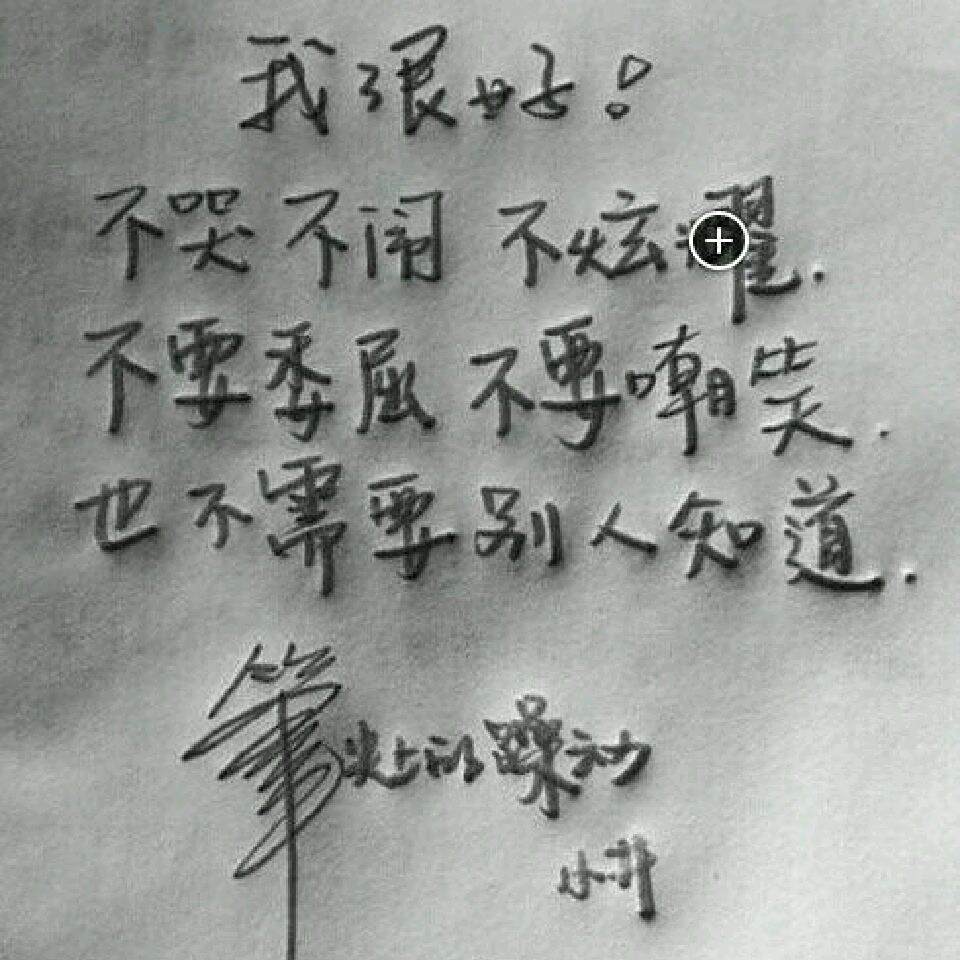 我很好!
不哭不闹 不炫耀.
不要委屈 不要嘲笑.
也不需要别人知道.
筆尖上的躁动
小升